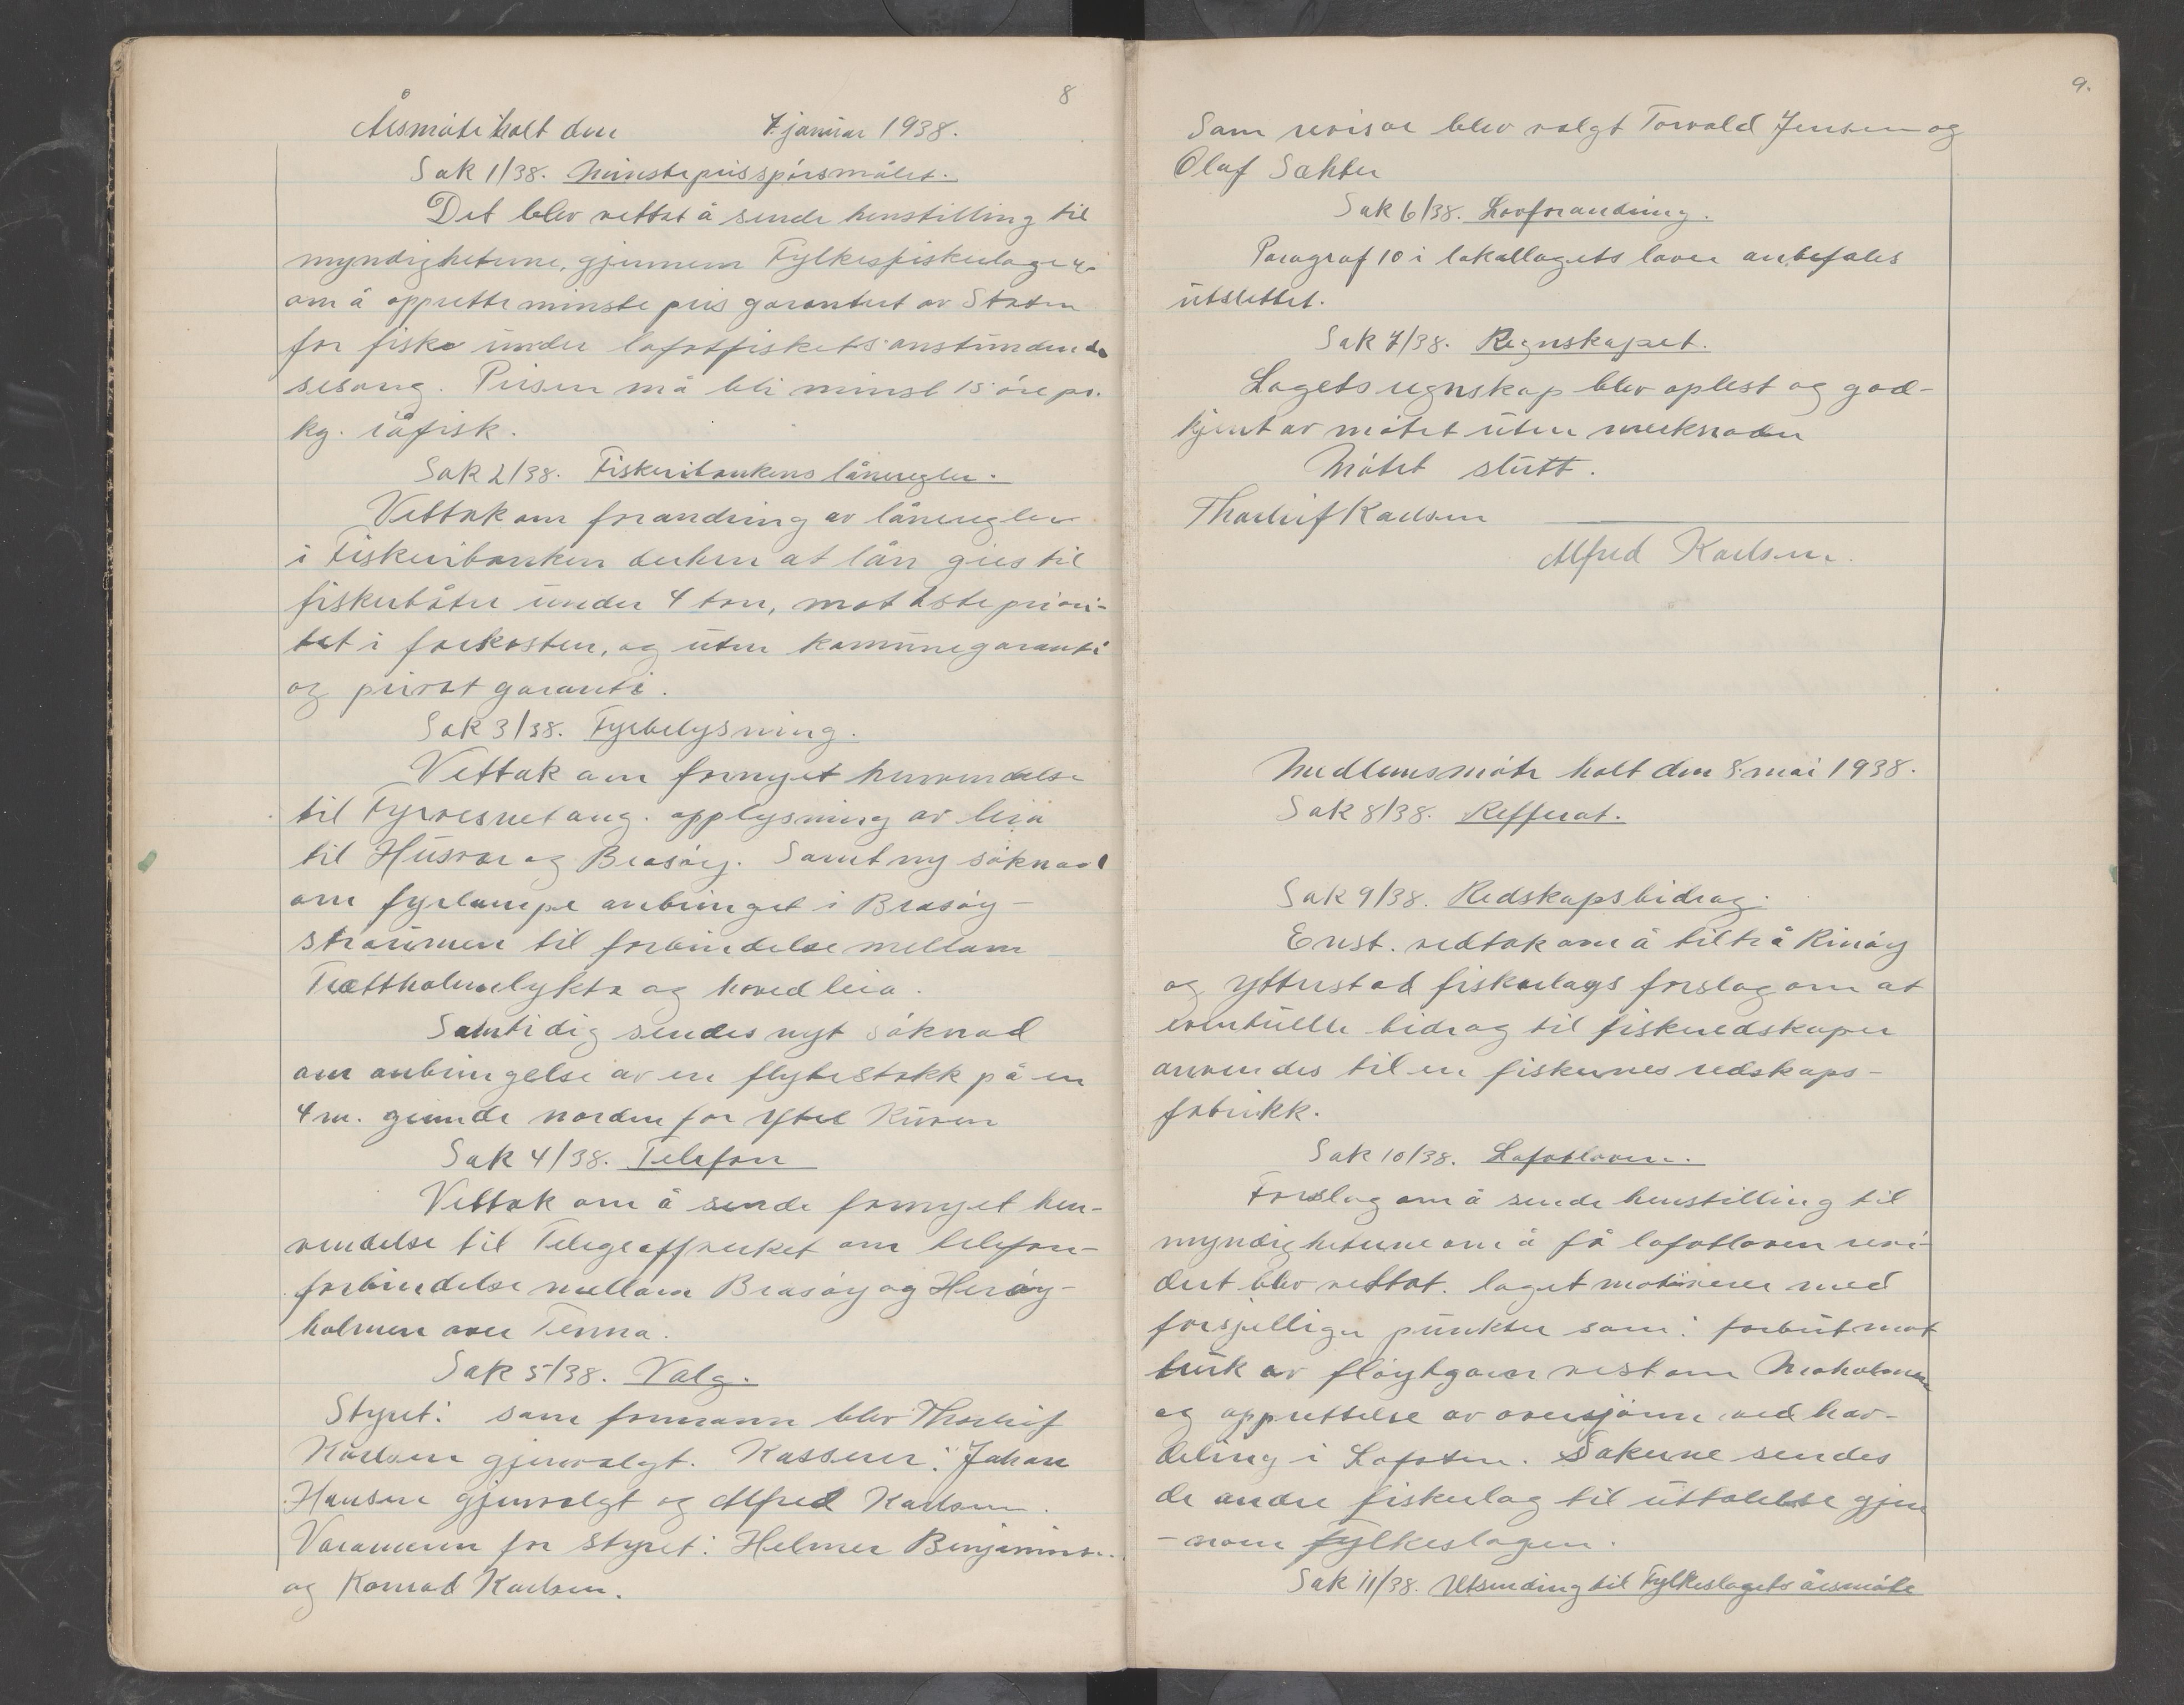 8
Årsmøte holt den 7. januar 1938.
Sak 1/38. Minsteprisspørsmålet.
Det blev vettat å sende henstilling til
myndighetene, gjennem Fylkesfiskerlage
om å opprette minste pris garantert av Staten
for fiske under lofotfiskets anstundende
sesong. Prisen må bli minst 15 øre pr.
kg. råfisk.
Sak 2/38. Fiskeribankens låneregler.
Vettak om forandring av låneregler
i Fiskeribanken derhen at lån gies til
fiskerbåter under 4 ton, mot 1ste priori-
tet i farkosten, og uten kommunegaranti
og privat garanti.
Sak 3/38. Fyrbelysning.
Vettak om fornyet henvendelse
til Fyrvesnet ang. opplysning av leia
til Husvær og Brasøy. Samt ny søknad
om fyrlampe anbringet i Brasøy-
straumen til forbindelse mellom
Trættholmlykta og hovedleia.
Samtidig sendes nyt søknad
om anbringelse av en flytestakk på en
4 m. grunde norden for Ytre Kuven
Sak 4/38. Telefon
Vettak om å sende fornyet hen-
vendelse til Telegraffverket om telefon-
forbindelse mellom Brasøy og Herøy-
holmen over Tenna.
Sak 5/38. Valg.
Styret: som formann blev Thorleif
Karlsen gjenvalgt. Kasserer: Johan
Hansen gjenvalgt og Alfred Karlsen.
Varamenn for styret: Helmer Benjamins..
og Konrad Karlsen.
9.
Som revisor blev valgt Torvald Jensen og
Olaf Sakter
Sak 6/38. Lovforandring.
Paragraf 10 i lokallagets lover anbefales
utslettet.
Sak 7/38. Regnskapet.
Lagets regnskap blev oplest og god-
kjent av møtet uten merknader
Møtet slutt.
Thorleif Karlsen
Alfred Karlsen.
Medlemsmøte holt den 8. mai 1938.
Sak 8/38. Refferat.
Sak 9/38. Redskapsbidrag.
Enst. vedtak om å tiltrå Rinøy
og Ytterstad fiskerlags forslag om at
eventuelle bidrag til fiskeredskaper
anvendes til en fiskernes redskaps-
fabrikk.
Sak 10/38. Lofotloven.
Forslag om å sende henstilling til
myndighetene om å få lofotloven revi-
dert blev vettat. laget motiverer med
forsjellige punkter som: forbut mot
bruk av fløytgarn vest om Moholmen
og opprettelse av oversjønn ved hav-
deling i Lofoten. Sakerne sendes
de andre fiskerlag til uttalelse gjen
-nom fylkeslagen.
Sak 11/38. Utsending til Fylkeslagets årsmøte